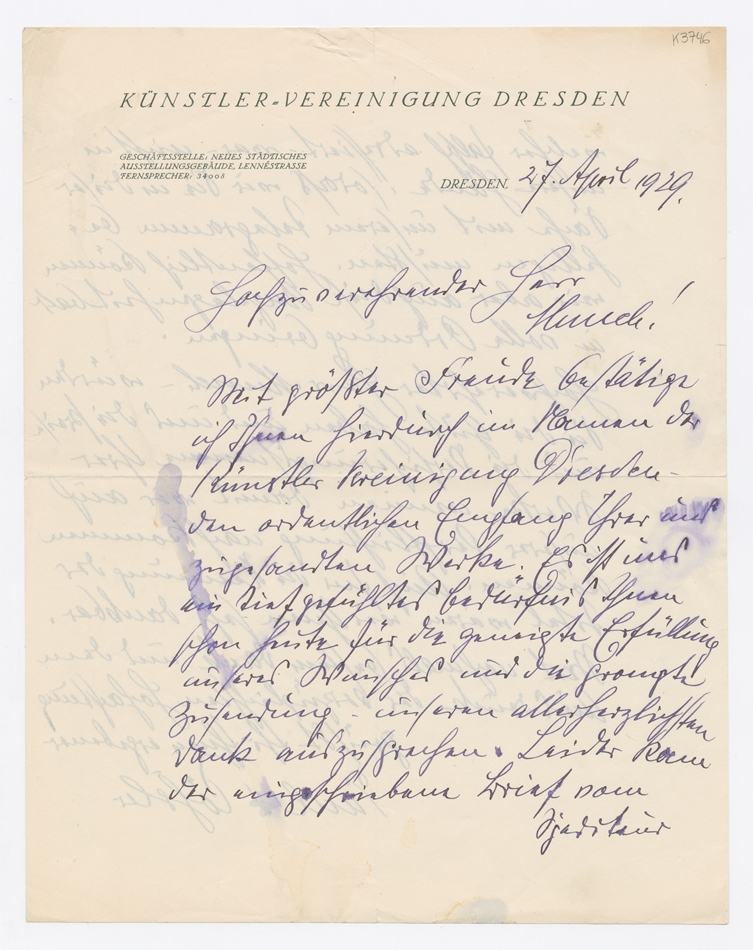 K3746
KÜNSTLER-VEREINIGUNG DRESDEN
GESCHÄFTSSTELLE: NEUES STÄDTISCHES
AUSSTELLUNGSGEBÄUDE, LENNÉSTRASSE
FERNSPRECHER: 34008
DRESDEN, 27. April 1929.
Hochzuverehrender Herr
Munch!
Mit größter Freude bestätige
ich Ihnen hierdurch im Namen der
Künstler Vereinigung Dresden -
den ordentlichen Empfang Ihrer uns
zugesandten Werke. Es ist uns
ein tiefgefühltes Bedürfnis Ihnen
schon heute für die geneigte Erfüllung
unseres Wunsches und die prompte
Zusendung - unseren allerherzlichsten
Dank auszusprechen. Leider kam
der eingeschriebene Brief vom
Spediteur